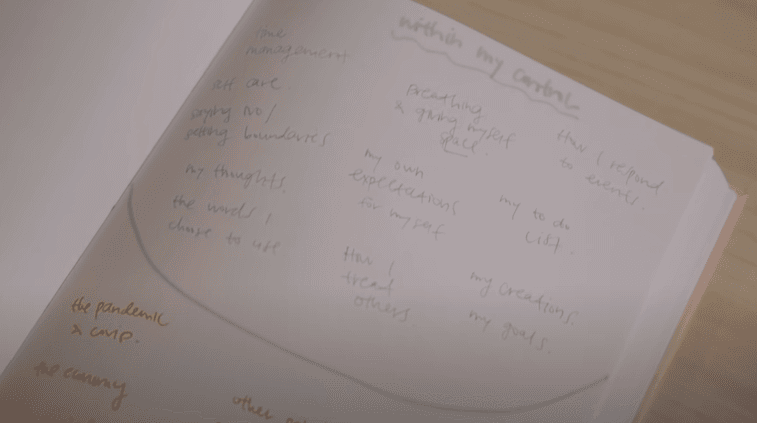 within my control
time
management
self care
saying no/
setting boundaries
my thoughts.
the words I
chose to use
breathing
& giving myself
space.
my own
expectations
for myself
How I
tread
others.
How I respond
to events.
my to do
list.
my creations.
my goals.
the pandemic
& covid.
the economy
other